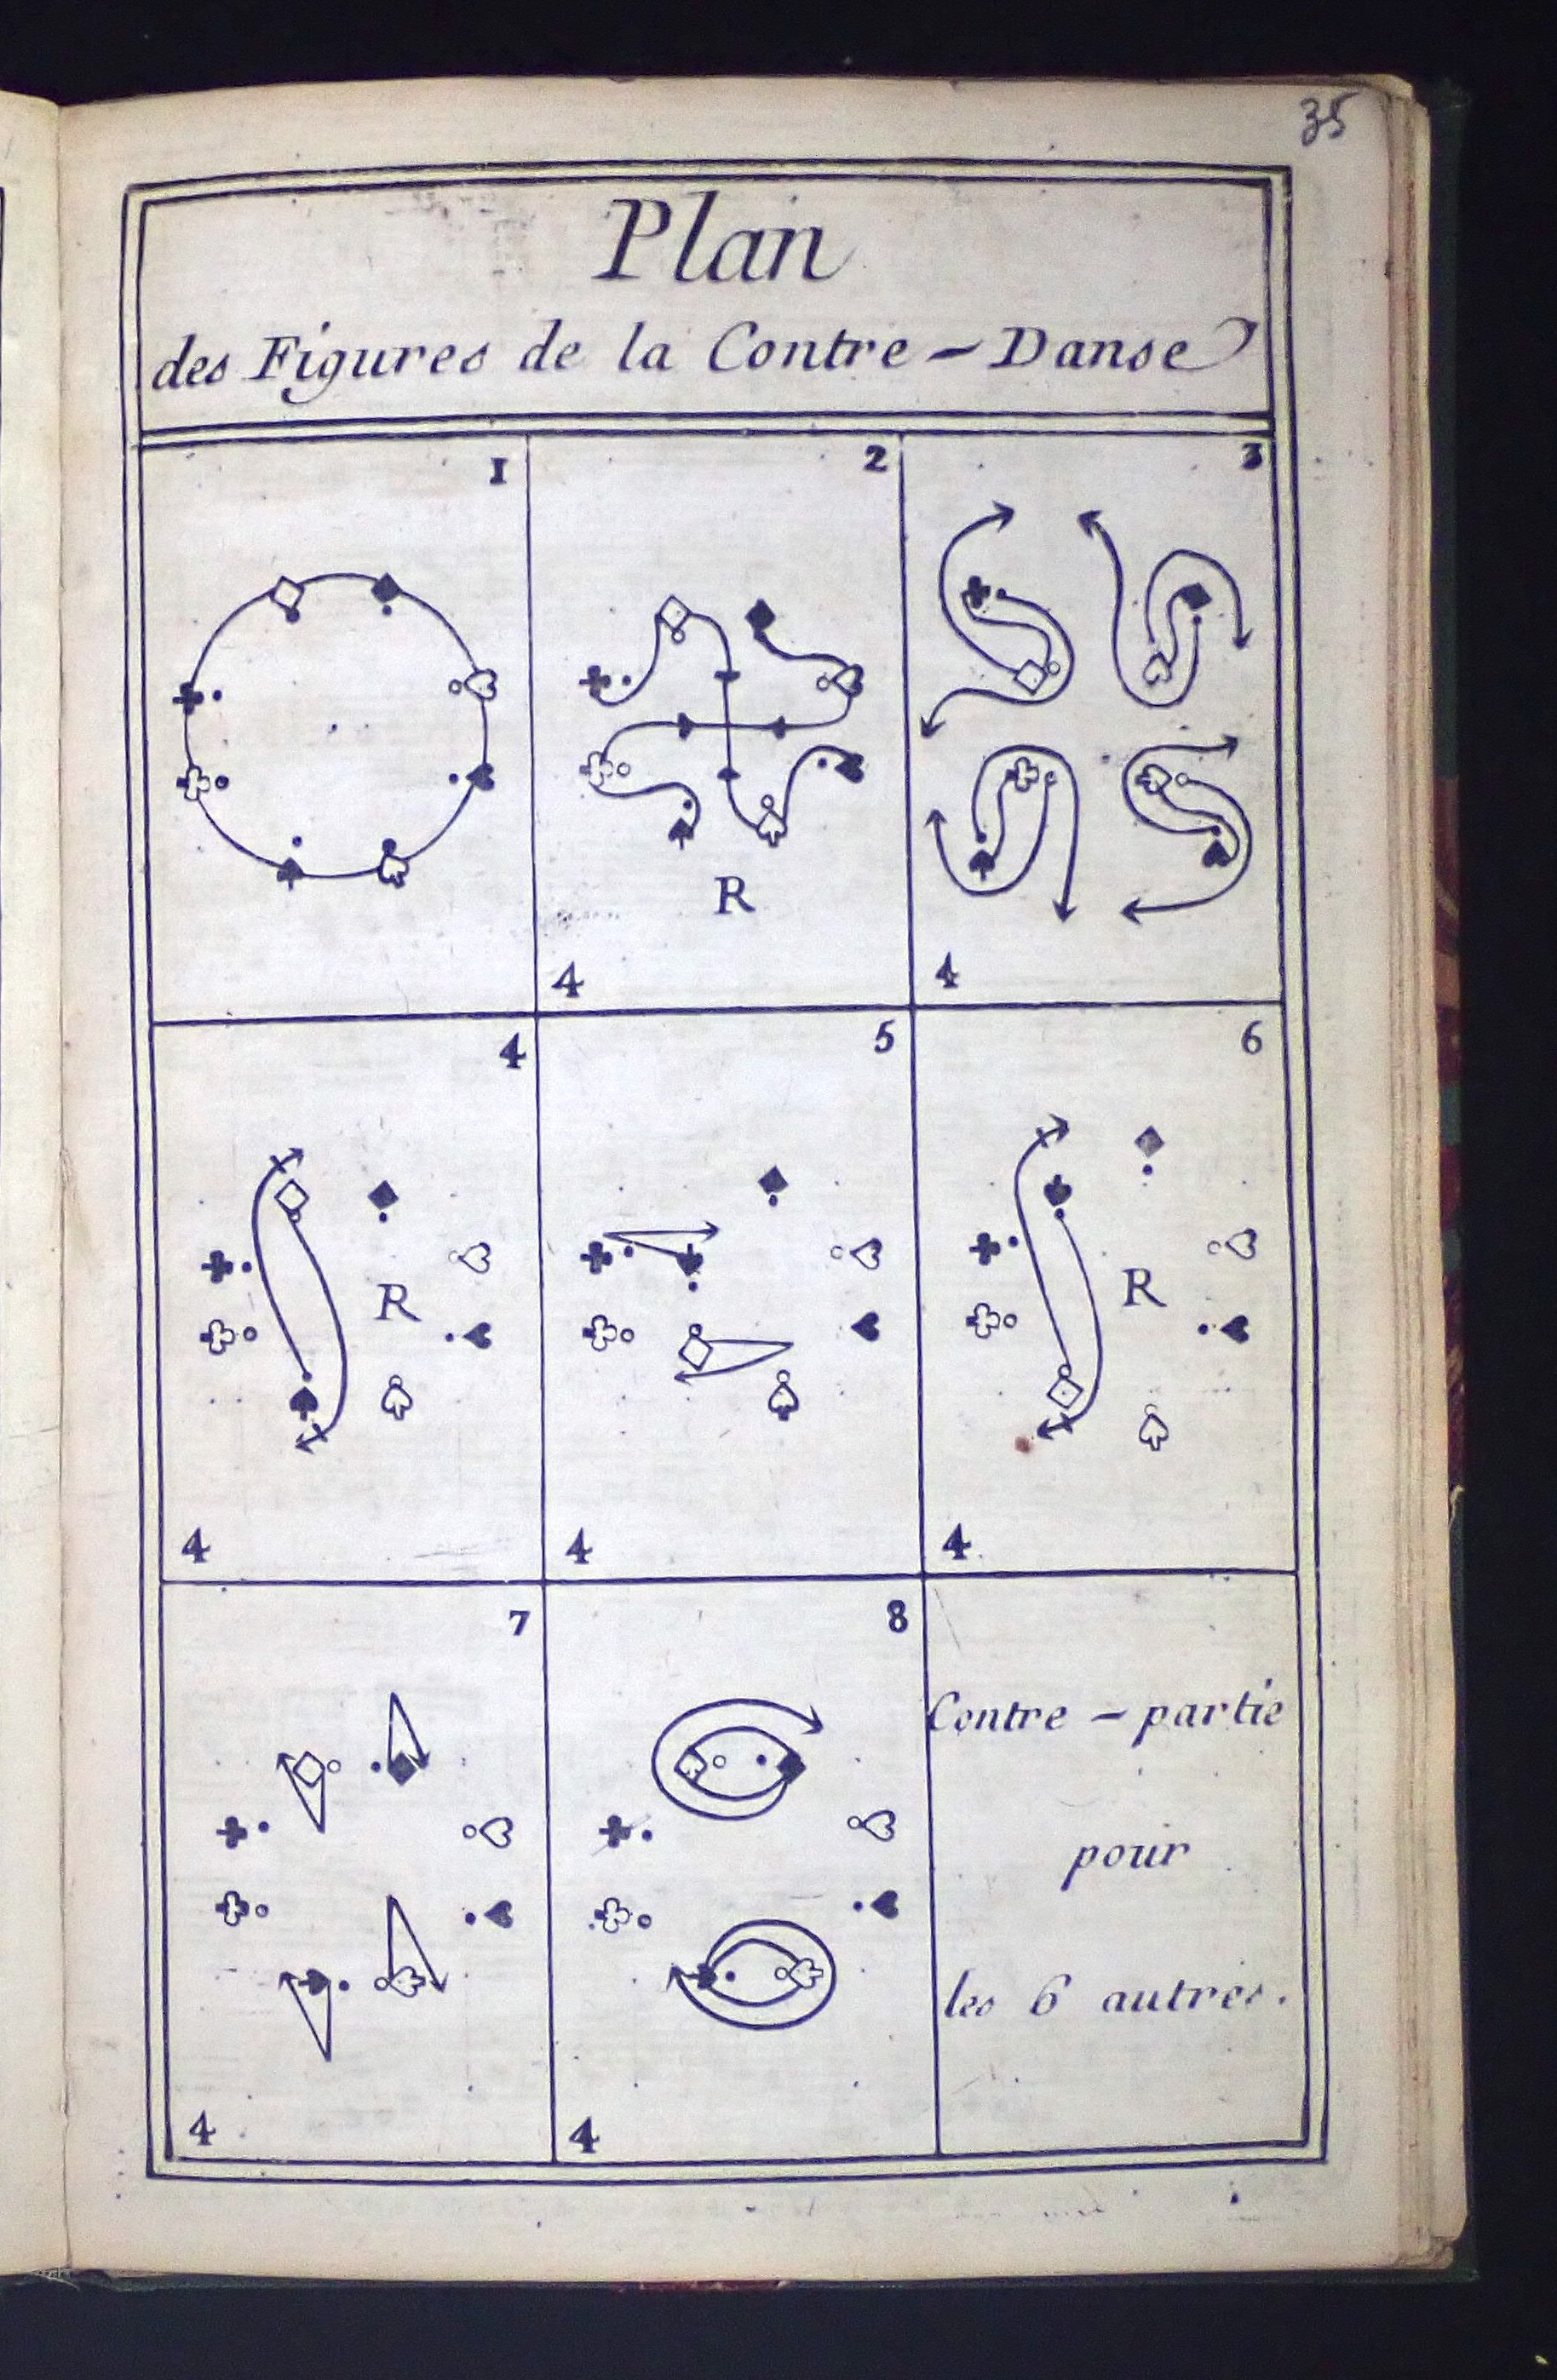 35
Plan
des Figures de la Contre-Danse
1
2
3
R
4
4
4
5
6
R
R
4
4
4
7
8
Contre-partie
pour
les 6 autres.
4
4